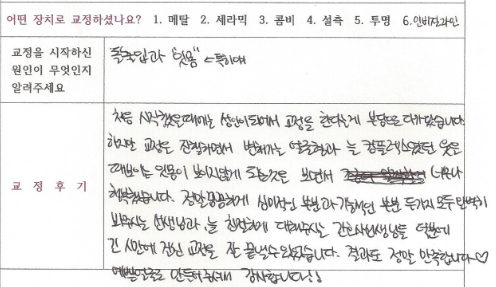 어떤 장치로 교정하셨나요? 1. 메탈 2. 세라믹 3. 콤비 4. 설측 5. 투명 6. 인비절라인
교정을 시작하신
원인이 무엇인지
알려주세요
돌출입과 "잇몸" ← 특히애
교 정 후 기
처음 시작했을때에는 성인이 되어서 교정을 한다는게 부담으로 다가왔습니다.
하지만 교정을 진행하면서 변해가는 얼굴형과 늘 컴플렉스였던 웃을
때 보이는 잇몸이 보이지않게 되는것을 보면서 너무나
행복했습니다. 정말 꼼꼼하게 심미적인 부분과 기능적인 부분 두가지 모두 완벽히
봐주시는 선생님과, 늘 친절하게 대해주시는 간호사선생님들 덕분에
긴 시간에 걸친 교정을 잘 끝낼 수 있었습니다. 결과도 정말 만족합니다♡
예쁜얼굴로 만들어주셔서 감사합니다!